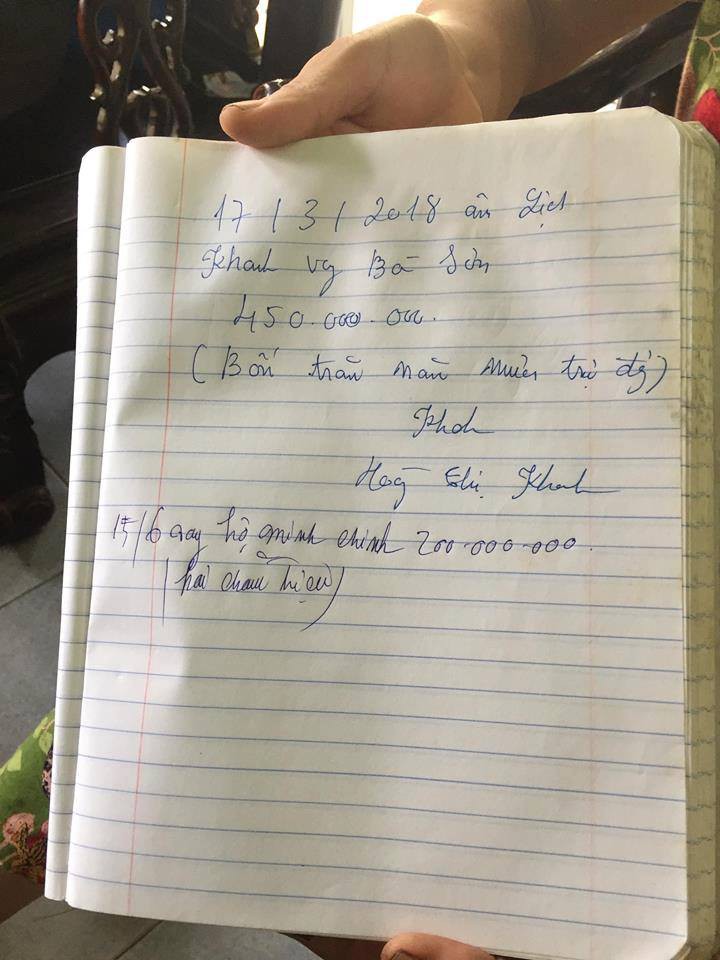 17/3/2018 âm Lịch
Khanh vy Bà Sơn
450.000.000.
(Bốn trăn năn mươi triệ đg)
Khah
Hoàg Thị Khanh
15/6 vay hộ minh chinh 200.000.000.
(hai chăm triệu)